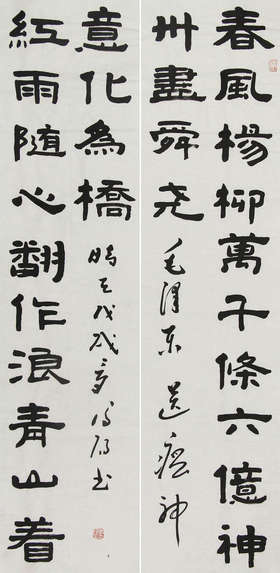 春風楊柳萬千條六億神
州盡舜尧
毛澤东 送瘟神
紅雨随心翻作浪青山着
意化為橋
時在戊戌 书